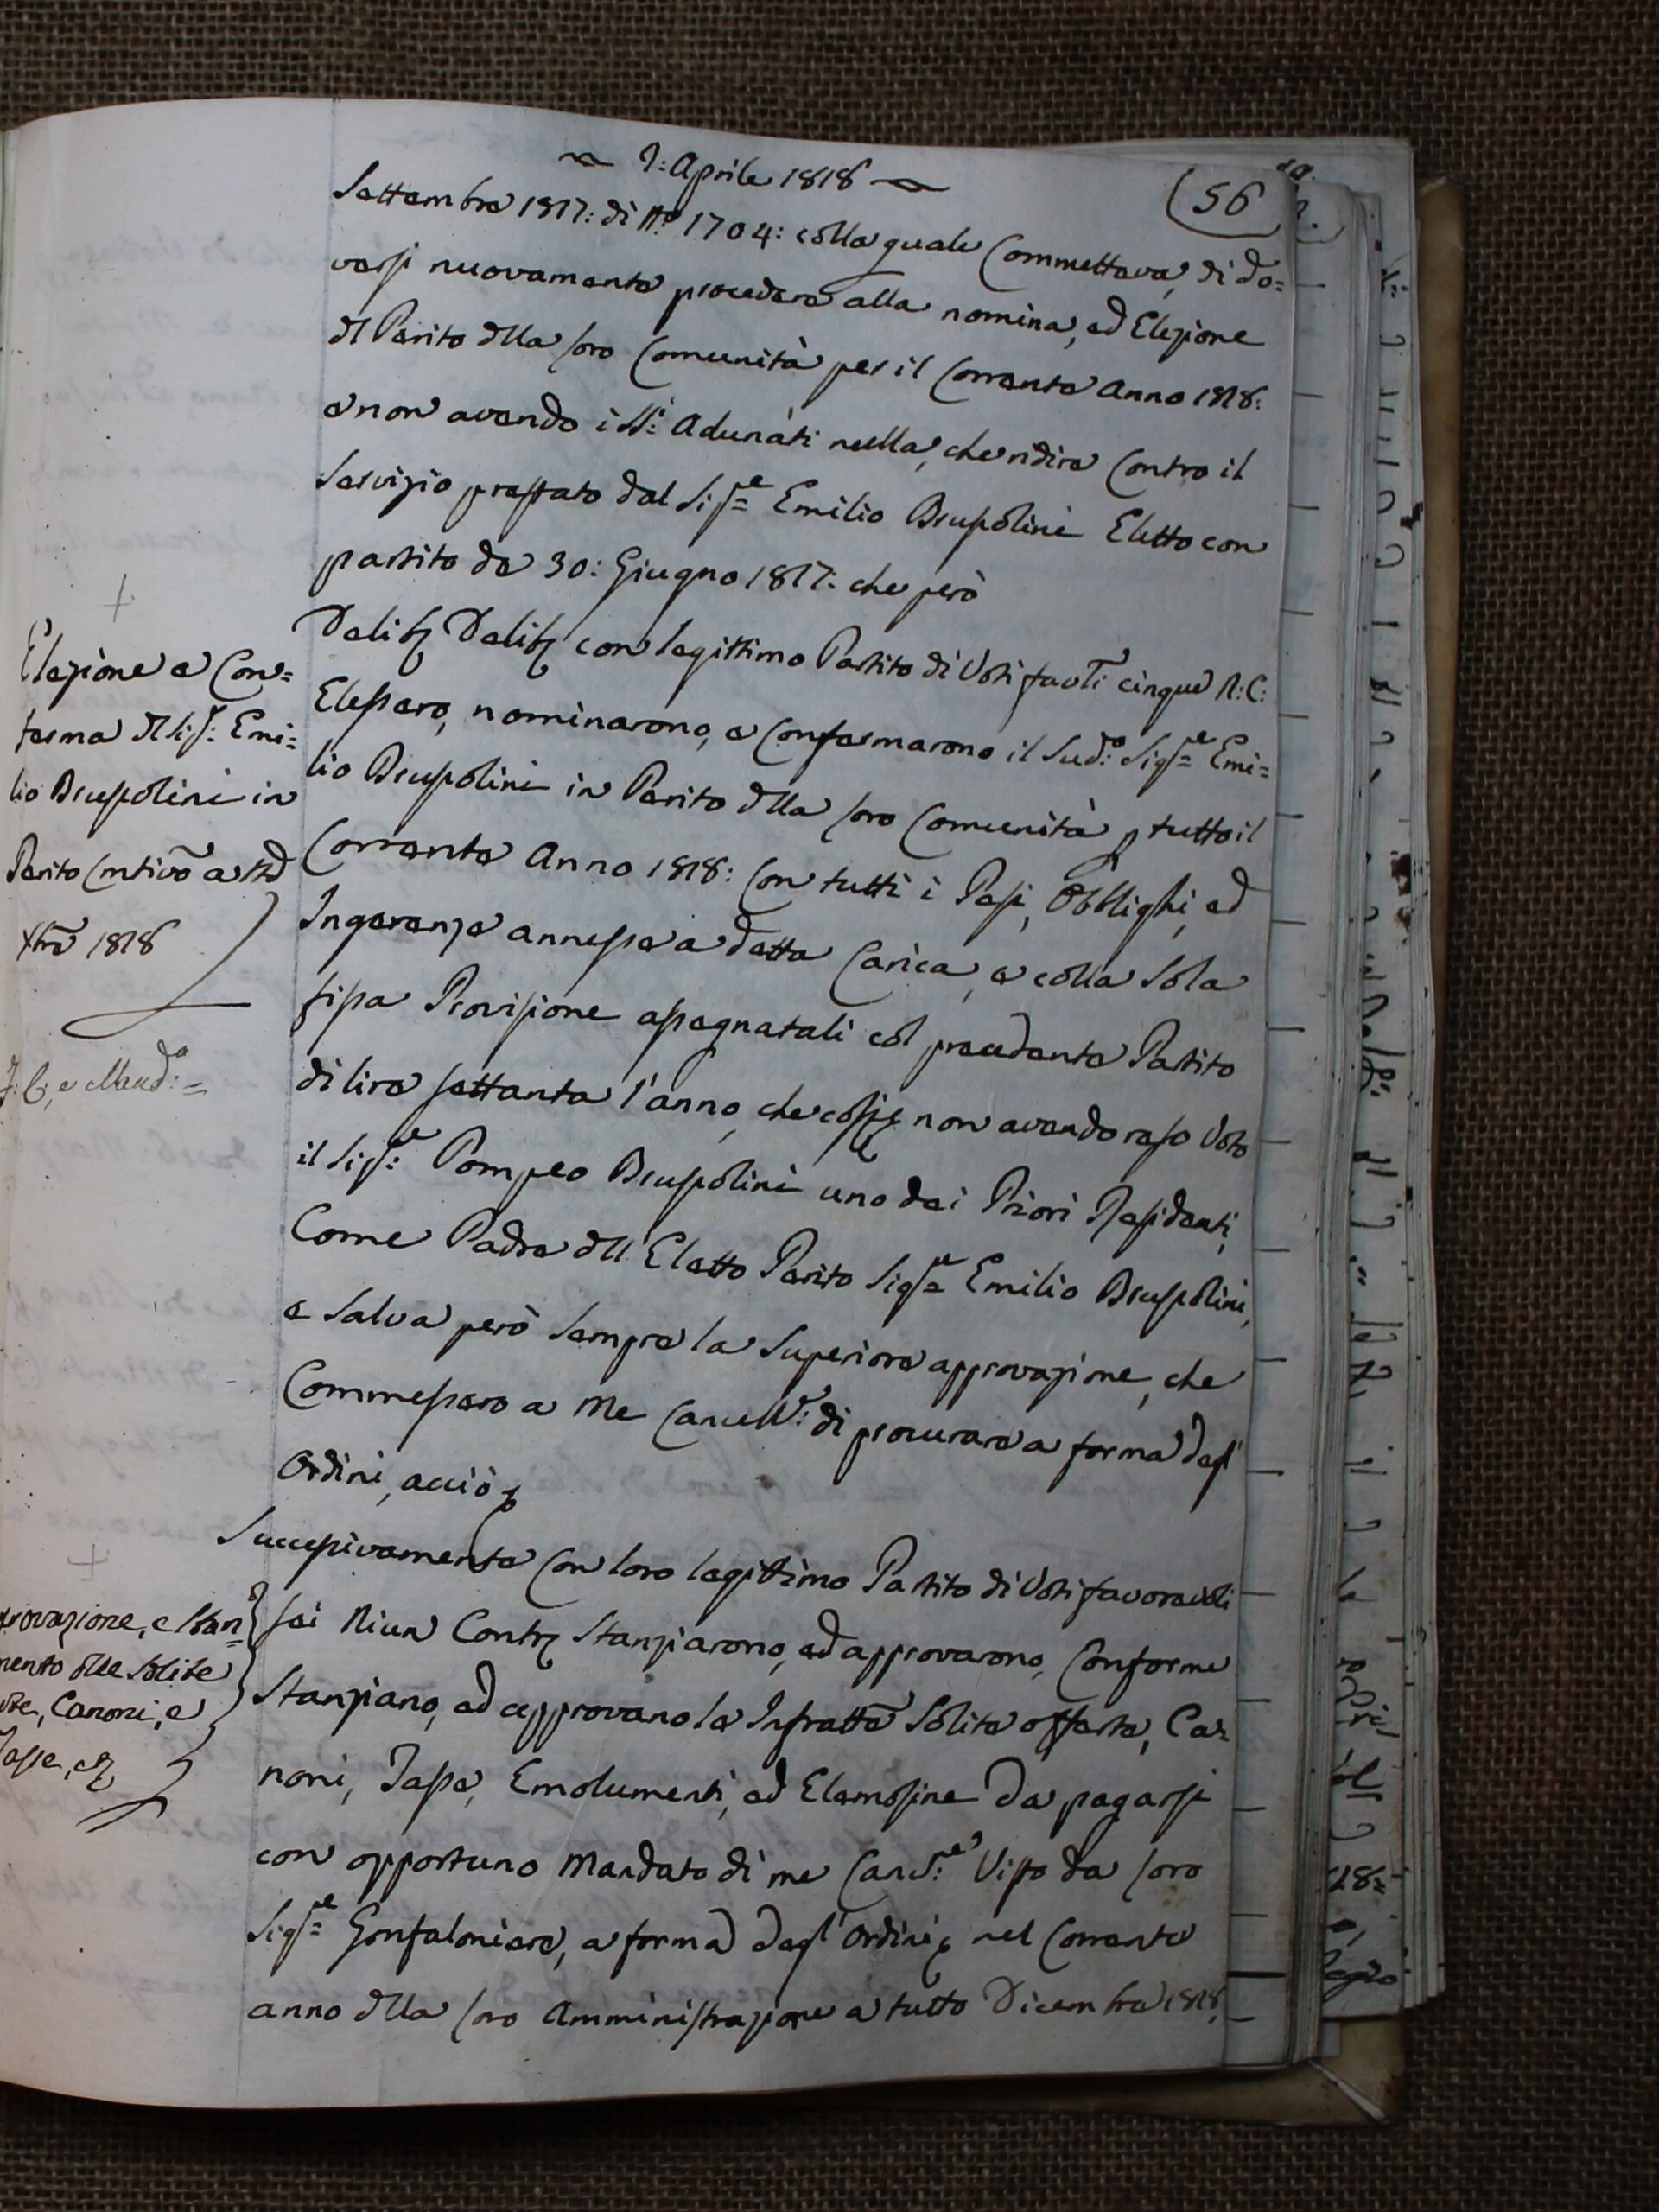 1: Aprile 1818
56
Settembre 1817: di N.o 1704: colla quale Commetteva, di do=
versi nuovamente procedere alla nomina, ed Elezione
dl Perito dlla loro Comunità per il Corrente Anno 1818:
e non avendo i SS:i Adunati nulla, che ridire Contro il
Servizio prestato dal Sig:re Emilio Bruspolini Eletto con
partito de 30: Giugno 1817: che però
Delib Delib con legittimo Partito di Voti favoli cinque N: C:
Elessero, nominarono, e Confermarono il Sud:o Sig:re Emi=
lio Bruspolini in Perito dlla loro Comunità p tutto il
Corrente Anno 1818: Con tutti i Pesi, Obblighi, ed
Ingerenze annesse a detta Carica, e colla Sola
fissa Provisione assegnatali col precedente Partito
di lire settanta l'anno, che cosi non avendo reso Voto
il Sig:re Pompeo Bruspolini uno dei Priori Residenti,
Come Padre dll Eletto Perito Sig:re Emilio Bruspolini,
e Salva però Sempre la Superiore approvazione, che
Commessero a Me Cancell:e di procurare a forma degl
Ordini, acciò
Successivamente Con loro legittimo Partito di Voti favorevoli
sei Niun Cont Stanziarono, ed approvarono, Conforme
Stanziano, ed approvano le Infratte Solite offerte, Ca=
noni, Tasse, Emolumenti, ed Elemosine da pagarsi
con opportuno Mandato di me Canc:re Visto da loro
Sig:re Gonfaloniere, a forma degl' Ordini nel Corrente
anno dlla loro Amministrazione a tutto Dicembre 1818,
Elezione e Con=
ferma dl Sig:r Emi=
lio Bruspolini in
Perito Cmtivo a ttto
Xbre 1818
e Mand:o =
provazione, e Stan=
mento dlle Solite
rte, Canoni, e
Tasse, e